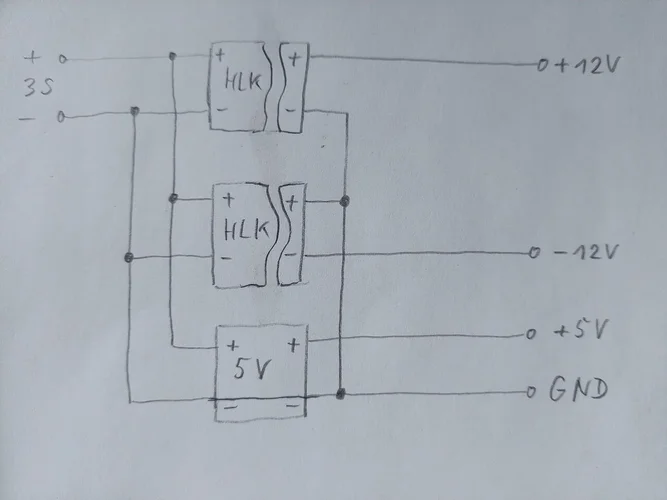 +
3S
-
+ HLK + +12V
- -
+ HLK +
- - -12V
+ + +5V
5V
- - GND